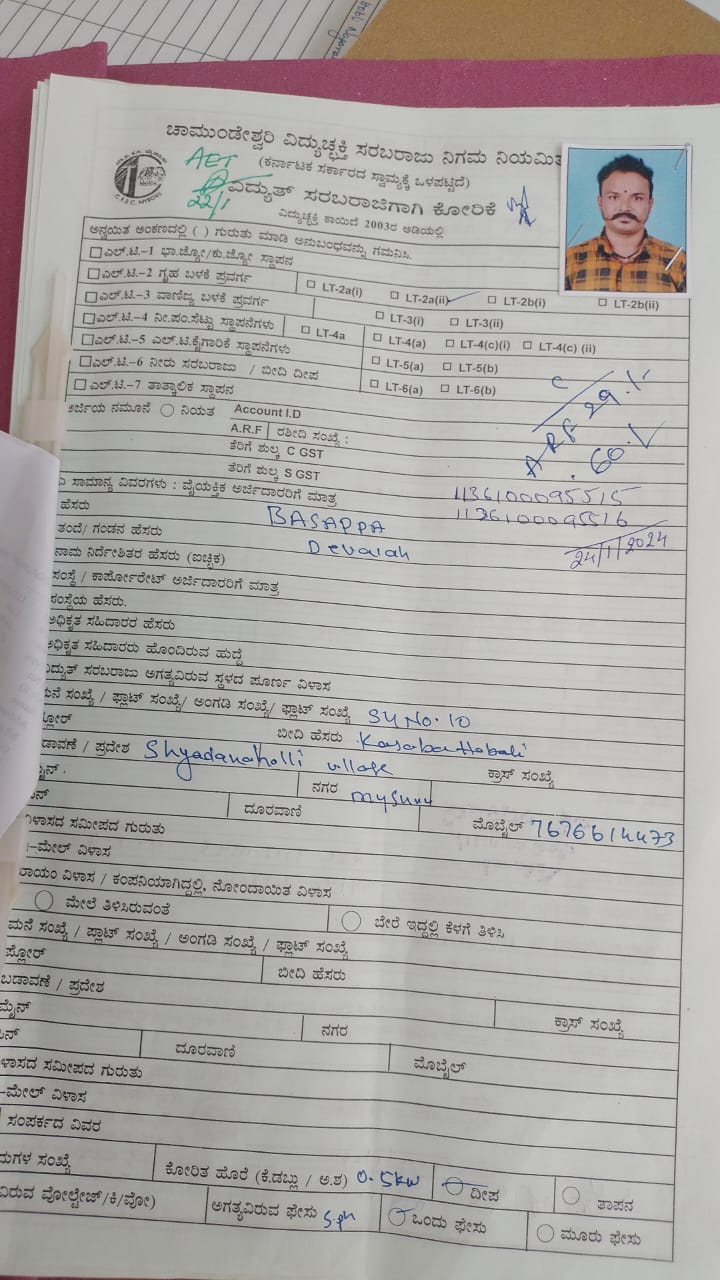 ಚಾಮುಂಡೇಶ್ವರಿ ವಿದ್ಯುಚ್ಛಕ್ತಿ ಸರಬರಾಜು ನಿಗಮ ನಿಯಮಿತ
(ಕರ್ನಾಟಕ ಸರ್ಕಾರದ ಸ್ವಾಮ್ಯಕ್ಕೆ ಒಳಪಟ್ಟಿದೆ)
C.E.S.C. MYSORE
AET
22/1
ವಿದ್ಯುತ್ ಸರಬರಾಜಿಗಾಗಿ ಕೋರಿಕೆ
ವಿದ್ಯುಚ್ಛಕ್ತಿ ಕಾಯಿದೆ 2003ರ ಅಡಿಯಲ್ಲಿ
ಅನ್ವಯಿತ ಅಂಕಣದಲ್ಲಿ ( ) ಗುರುತು ಮಾಡಿ ಅನುಬಂಧವನ್ನು ಗಮನಿಸಿ.
ಎಲ್.ಟಿ.–1 ಭಾ.ಜ್ಯೋ/ಕು.ಜ್ಯೋ ಸ್ಥಾಪನ
ಎಲ್.ಟಿ.–2 ಗೃಹ ಬಳಕೆ ಪ್ರವರ್ಗ LT-2a(i) LT-2a(ii) LT-2b(i) LT-2b(ii)
ಎಲ್.ಟಿ.–3 ವಾಣಿಜ್ಯ ಬಳಕೆ ಪ್ರವರ್ಗ LT-3(i) LT-3(ii)
ಎಲ್.ಟಿ.–4 ನೀ.ಪಂ.ಸೆಟ್ಟು ಸ್ಥಾಪನೆಗಳು LT-4a LT-4(a) LT-4(c)(i) LT-4(c) (ii)
ಎಲ್.ಟಿ.–5 ಎಲ್.ಟಿ.ಕೈಗಾರಿಕೆ ಸ್ಥಾಪನೆಗಳು LT-5(a) LT-5(b)
ಎಲ್.ಟಿ.–6 ನೀರು ಸರಬರಾಜು / ಬೀದಿ ದೀಪ LT-6(a) LT-6(b)
ಎಲ್.ಟಿ.–7 ತಾತ್ಕಾಲಿಕ ಸ್ಥಾಪನ
ಅರ್ಜಿಯ ನಮೂನೆ ನಿಯತ Account I.D
A.R.F ರಶೀದಿ ಸಂಖ್ಯೆ :
ತೆರಿಗೆ ಶುಲ್ಕ C GST
ತೆರಿಗೆ ಶುಲ್ಕ S GST
ARF 29.1
60.
ಸಾಮಾನ್ಯ ವಿವರಗಳು : ವೈಯಕ್ತಿಕ ಅರ್ಜಿದಾರರಿಗೆ ಮಾತ್ರ 1136100095515
1136100095516
24/1/2024
ಹೆಸರು BASAPPA
ತಂದೆ/ ಗಂಡನ ಹೆಸರು Devaiah
ನಾಮ ನಿರ್ದೇಶಿತರ ಹೆಸರು (ಐಚ್ಛಿಕ)
ಸಂಸ್ಥೆ / ಕಾರ್ಪೋರೇಟ್ ಅರ್ಜಿದಾರರಿಗೆ ಮಾತ್ರ
ಸಂಸ್ಥೆಯ ಹೆಸರು.
ಅಧಿಕೃತ ಸಹಿದಾರರ ಹೆಸರು
ಅಧಿಕೃತ ಸಹಿದಾರರು ಹೊಂದಿರುವ ಹುದ್ದೆ
ವಿದ್ಯುತ್ ಸರಬರಾಜು ಅಗತ್ಯವಿರುವ ಸ್ಥಳದ ಪೂರ್ಣ ವಿಳಾಸ
ಮನೆ ಸಂಖ್ಯೆ / ಫ್ಲಾಟ್ ಸಂಖ್ಯೆ/ ಅಂಗಡಿ ಸಂಖ್ಯೆ/ ಫ್ಲಾಟ್ ಸಂಖ್ಯೆ SY No. 10
ಫ್ಲೋರ್ ಬೀದಿ ಹೆಸರು Kasaba Hobali
ಬಡಾವಣೆ / ಪ್ರದೇಶ Shyadanaholli village ಕ್ರಾಸ್ ಸಂಖ್ಯೆ
ನಗರ
ದೂರವಾಣಿ ಮೊಬೈಲ್ 7676614473
ವಿಳಾಸದ ಸಮೀಪದ ಗುರುತು
–ಮೇಲ್ ವಿಳಾಸ
ಖಾಯಂ ವಿಳಾಸ / ಕಂಪನಿಯಾಗಿದ್ದಲ್ಲಿ, ನೋಂದಾಯಿತ ವಿಳಾಸ
ಮೇಲೆ ತಿಳಿಸಿರುವಂತೆ ಬೇರೆ ಇದ್ದಲ್ಲಿ ಕೆಳಗೆ ತಿಳಿಸಿ
ಮನೆ ಸಂಖ್ಯೆ / ಪ್ಲಾಟ್ ಸಂಖ್ಯೆ / ಅಂಗಡಿ ಸಂಖ್ಯೆ / ಫ್ಲಾಟ್ ಸಂಖ್ಯೆ
ಫ್ಲೋರ್ ಬೀದಿ ಹೆಸರು
ಬಡಾವಣೆ / ಪ್ರದೇಶ ಕ್ರಾಸ್ ಸಂಖ್ಯೆ
ಮೈನ್ ನಗರ
ದೂರವಾಣಿ ಮೊಬೈಲ್
ಳಾಸದ ಸಮೀಪದ ಗುರುತು
–ಮೇಲ್ ವಿಳಾಸ
ಸಂಪರ್ಕದ ವಿವರ
ಸಂಖ್ಯೆ ಕೋರಿತ ಹೊರೆ (ಕೆ.ಡಬ್ಲು / ಅ.ಶ) 0.5kw ದೀಪ ತಾಪನ
ವಿರುವ ವೋಲ್ಟೇಜ್/ಕಿ/ವೋ) ಅಗತ್ಯವಿರುವ ಫೇಸು S-ph ಒಂದು ಫೇಸು ಮೂರು ಫೇಸು